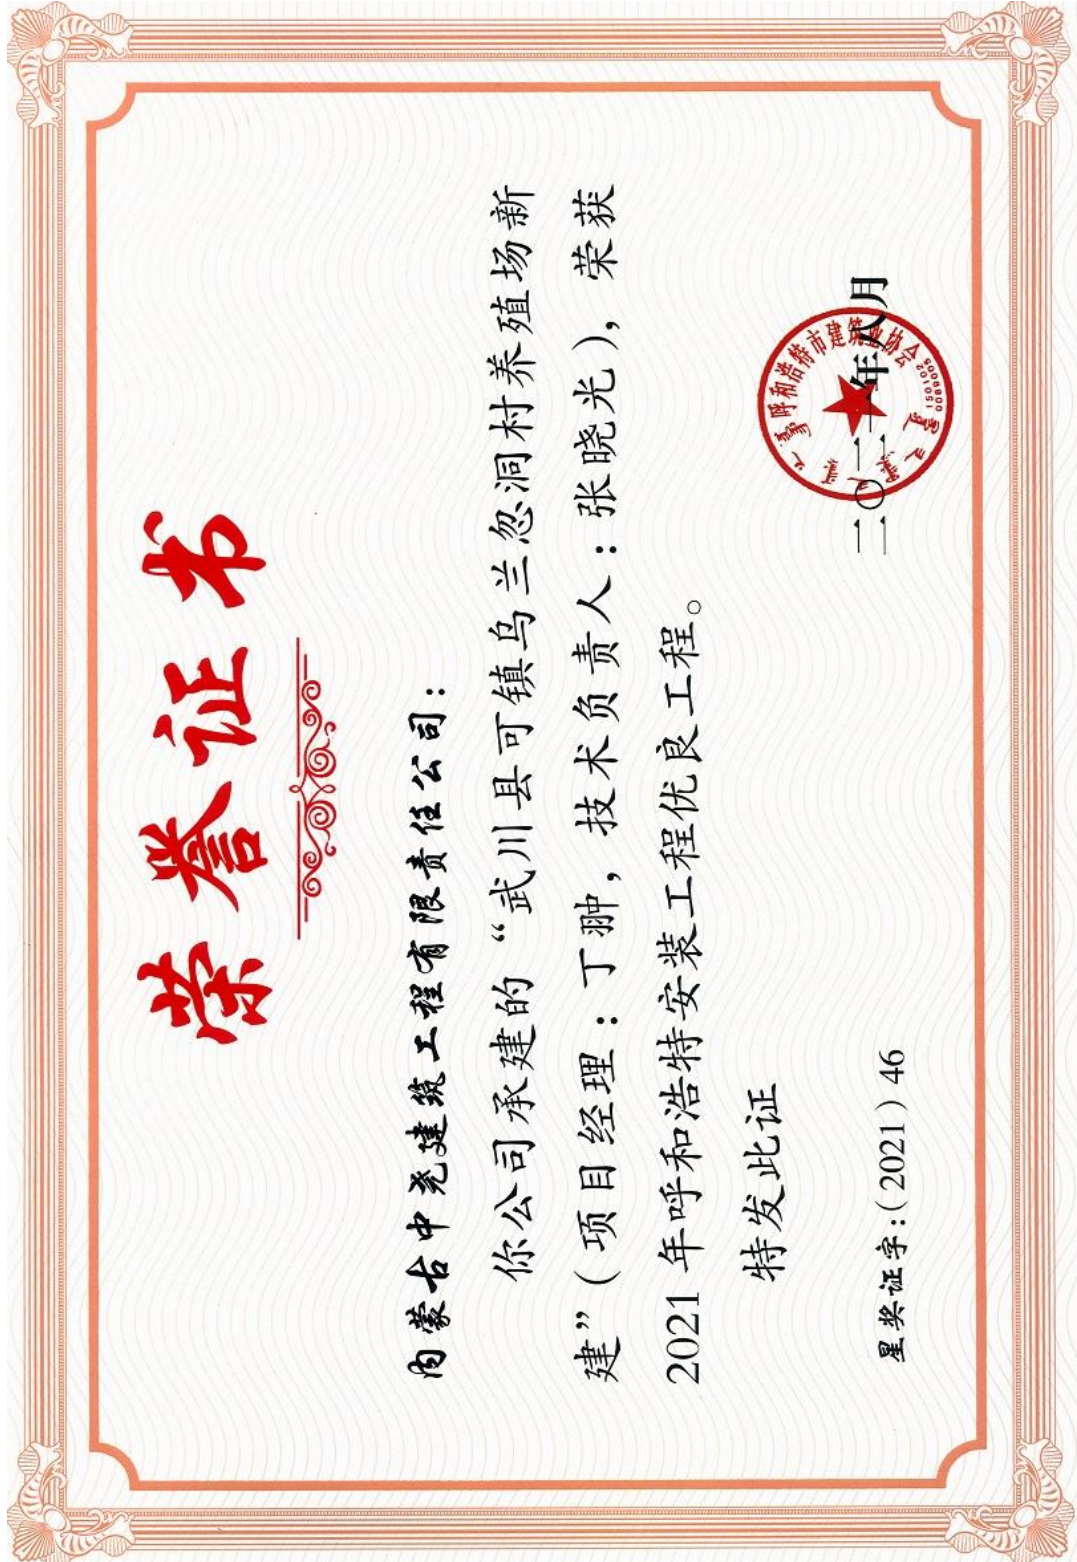 荣誉证书
内蒙古中尧建筑工程有限责任公司：
你公司承建的“武川县可镇乌兰忽洞村养殖场新
建”（项目经理：丁翀，技术负责人：张晓光），荣获
2021 年呼和浩特安装工程优良工程。
特发此证
星奖证字：（2021）46
呼和浩特市建筑业协会
150102
0089005
二〇二一年八月